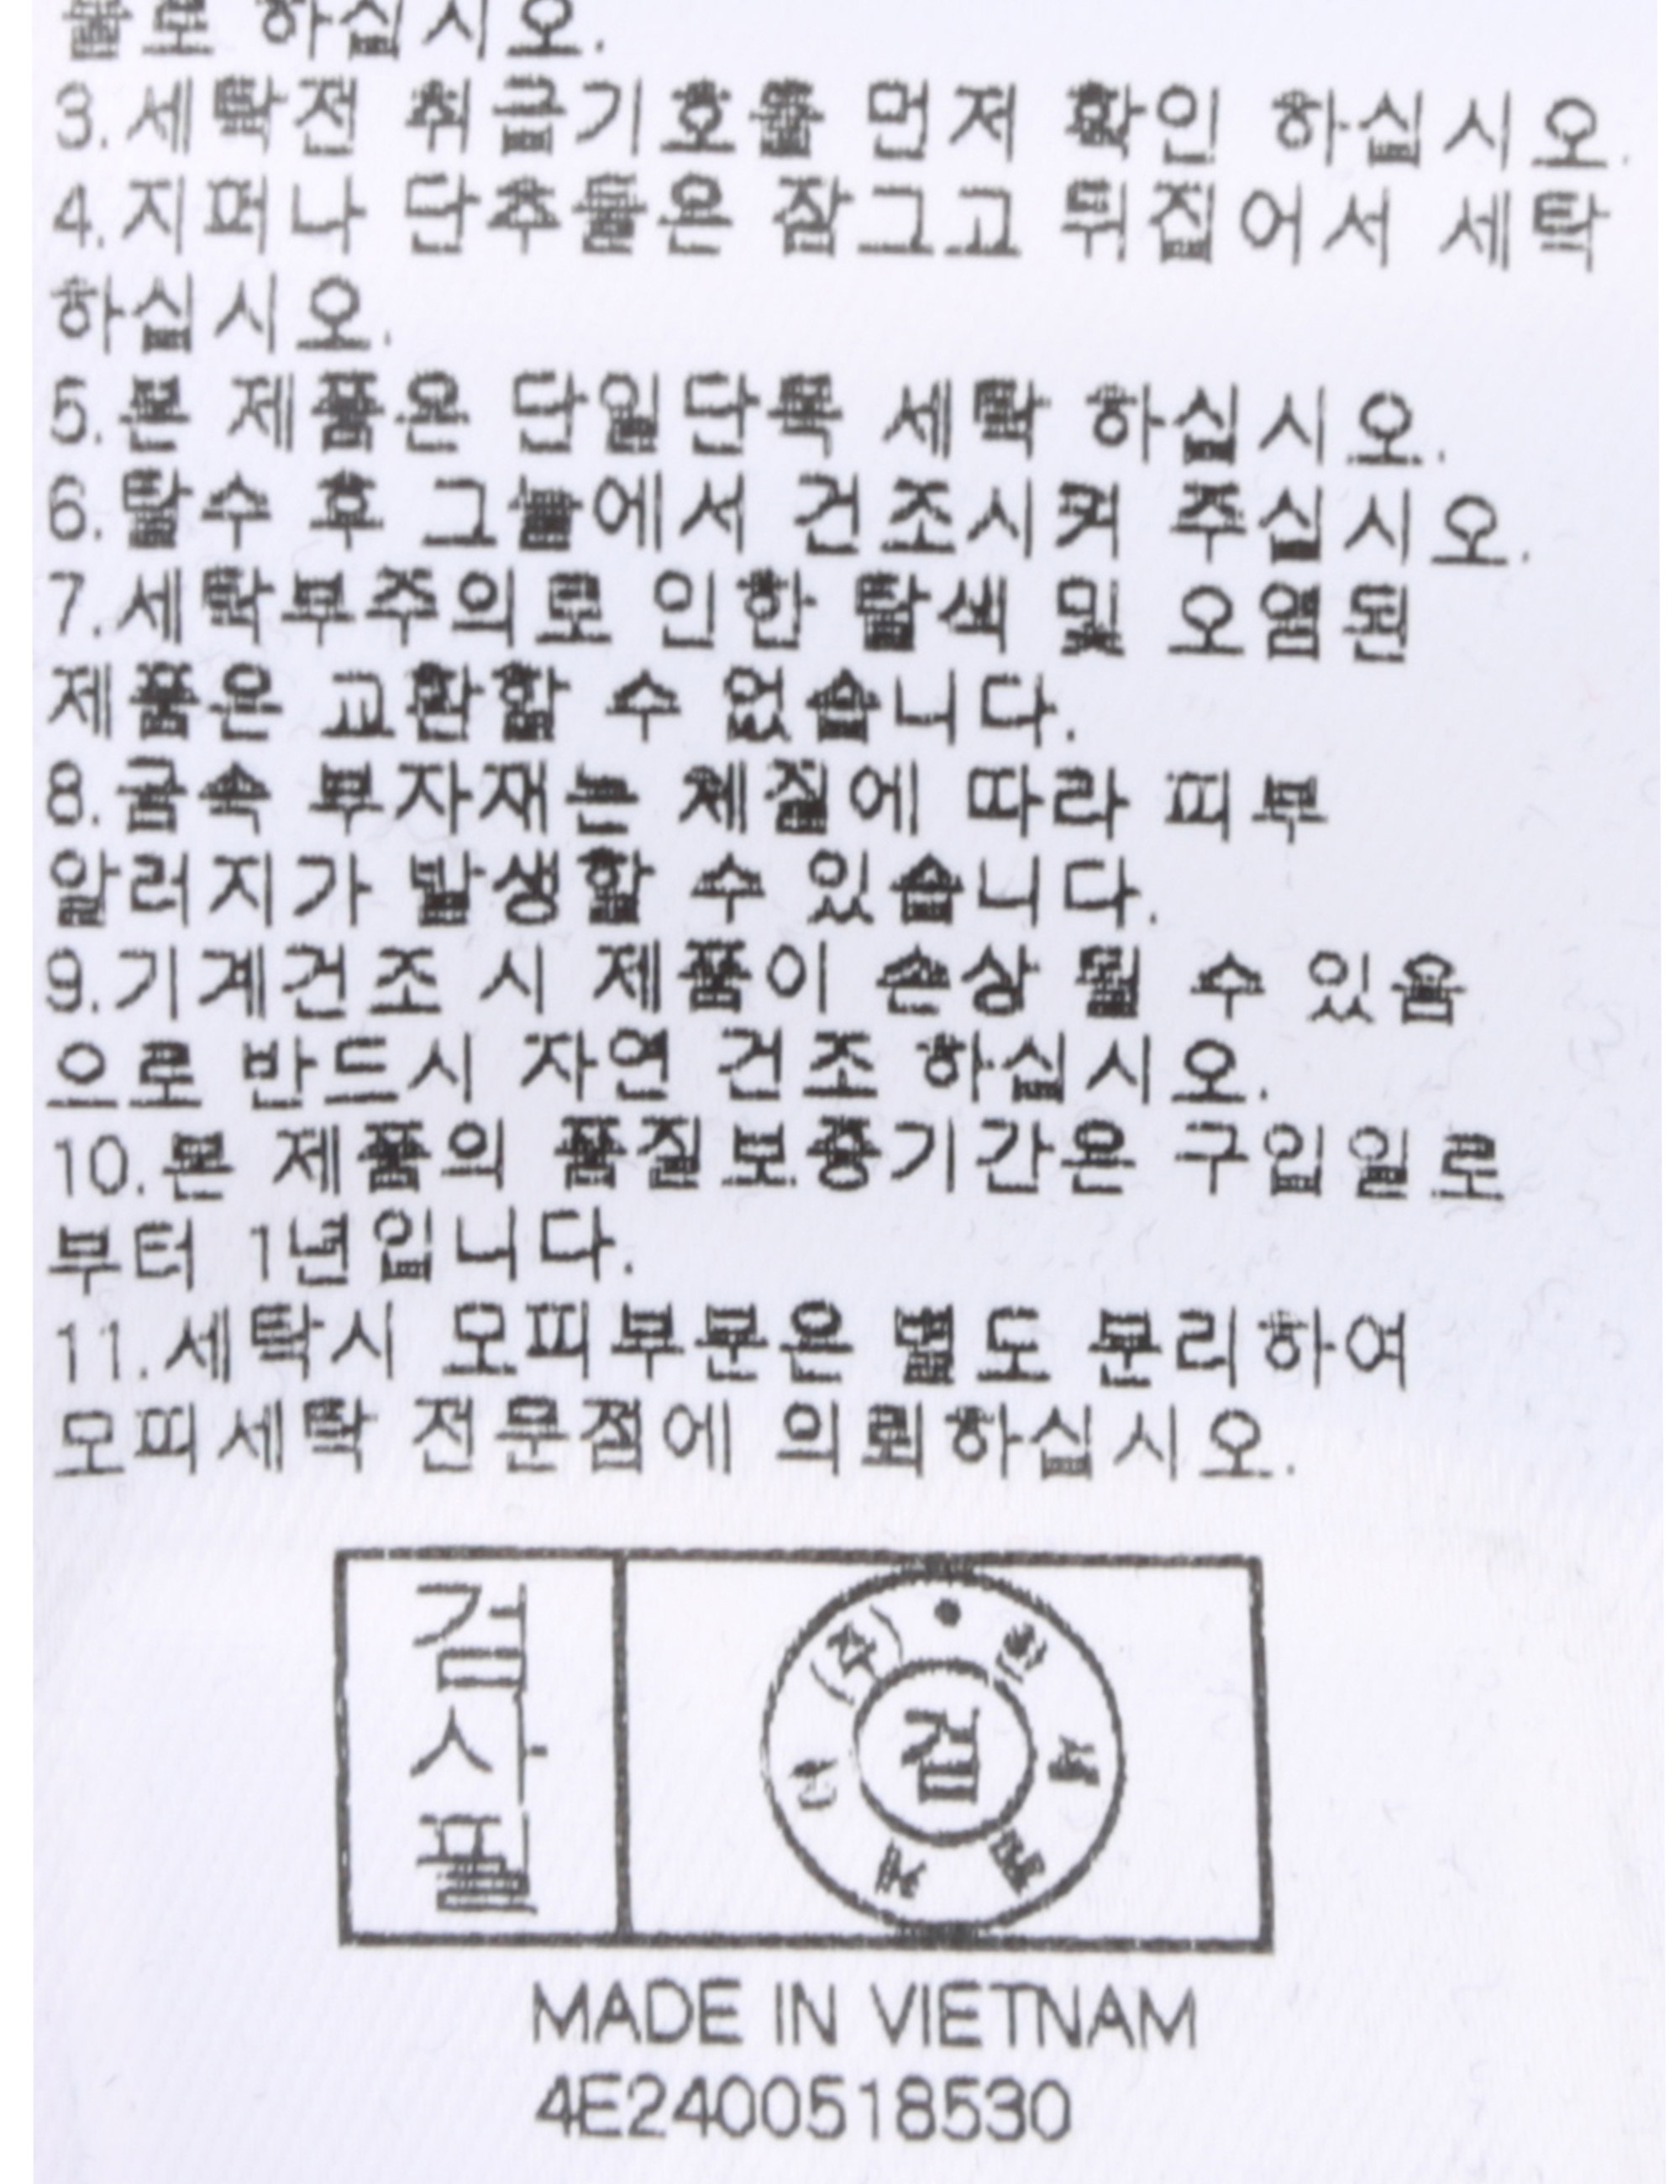 물로 하십시오.
3.세탁전 취급기호를 먼저 확인 하십시오.
4.지퍼나 단추물은 잠그고 뒤집어서 세탁
하십시오.
5.본 제품은 단일단독 세탁 하십시오.
6.탈수 후 그늘에서 건조시켜 주십시오.
7.세탁부주의로 인한 탈색 및 오염된
제품은 교환할 수 없습니다.
8.금속 부자재는 체질에 따라 피부
알러지가 발생할 수 있습니다.
9.기계건조 시 제품이 손상 될 수 있음
으로 반드시 자연 건조 하십시오.
10.본 제품의 품질보증기간은 구입일로
부터 1년입니다.
11.세탁시 모피부분은 별도 분리하여
모피세탁 전문점에 의뢰하십시오.
검사필
(주)한세엠케이
검
MADE IN VIETNAM
4E2400518530